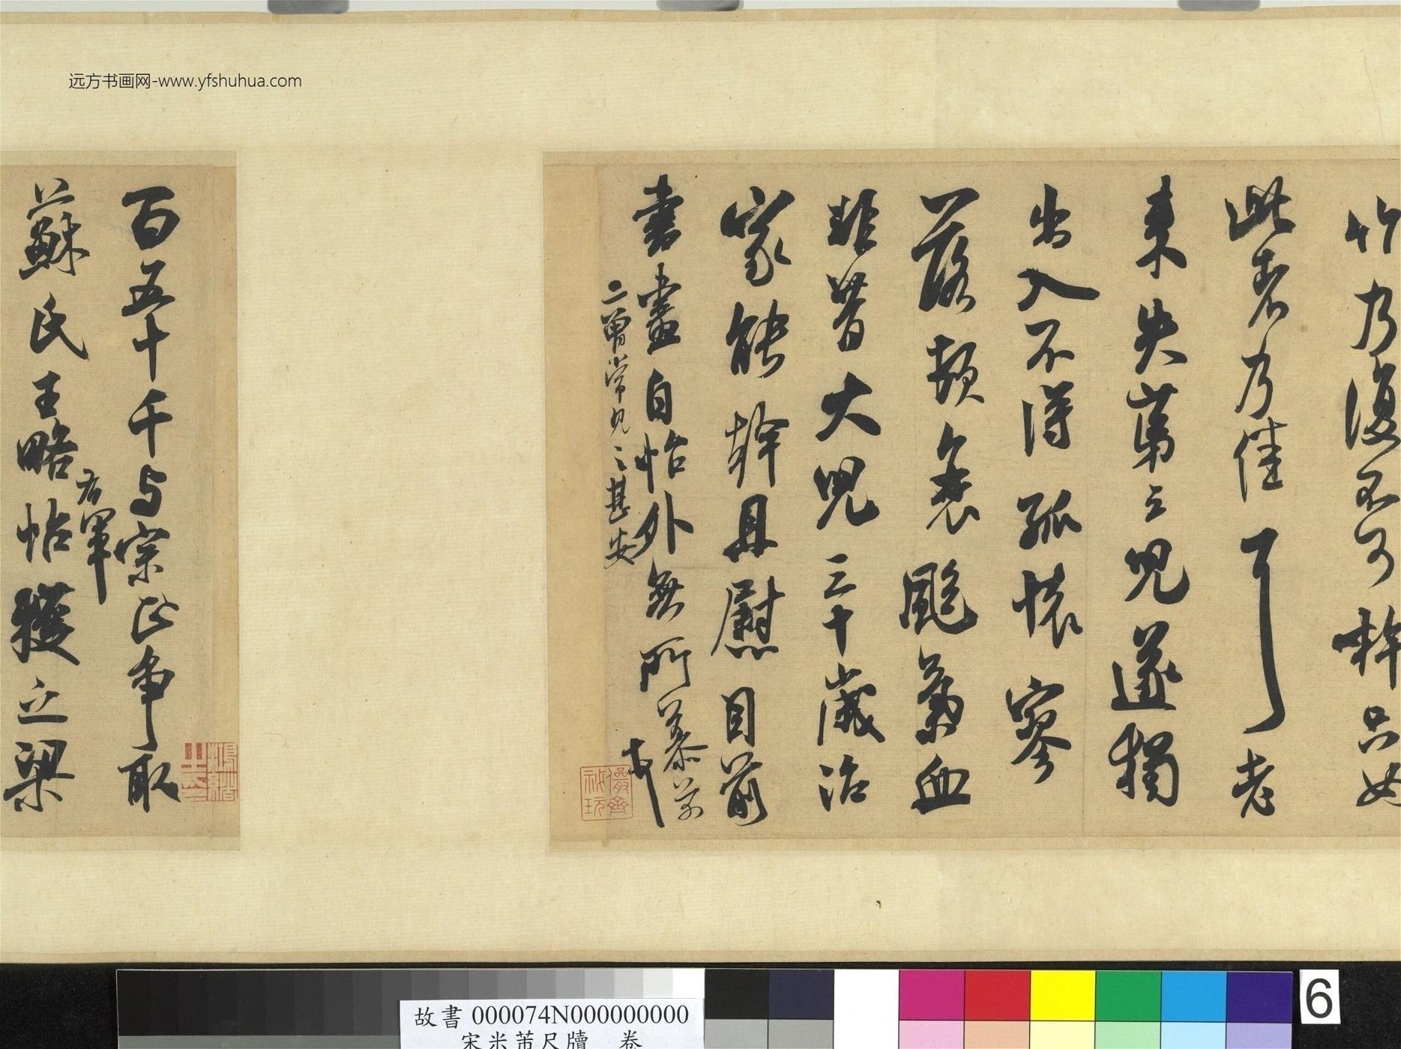 远方书画网-www.yfshuhua.com
竹乃復不可
此者乃佳耳老
來失第三兒遂獨
出入不得孤懷寥
落頓衰颸氣血
非昔大兒三十歲治
家能幹且慰目前
書畫自怡外無所慕芾
二曾常見之甚安
百五十千与宗正争取
蘇氏王略帖獲之梁
右軍
故書 000074N000000000
宋米芾尺牘 卷
6